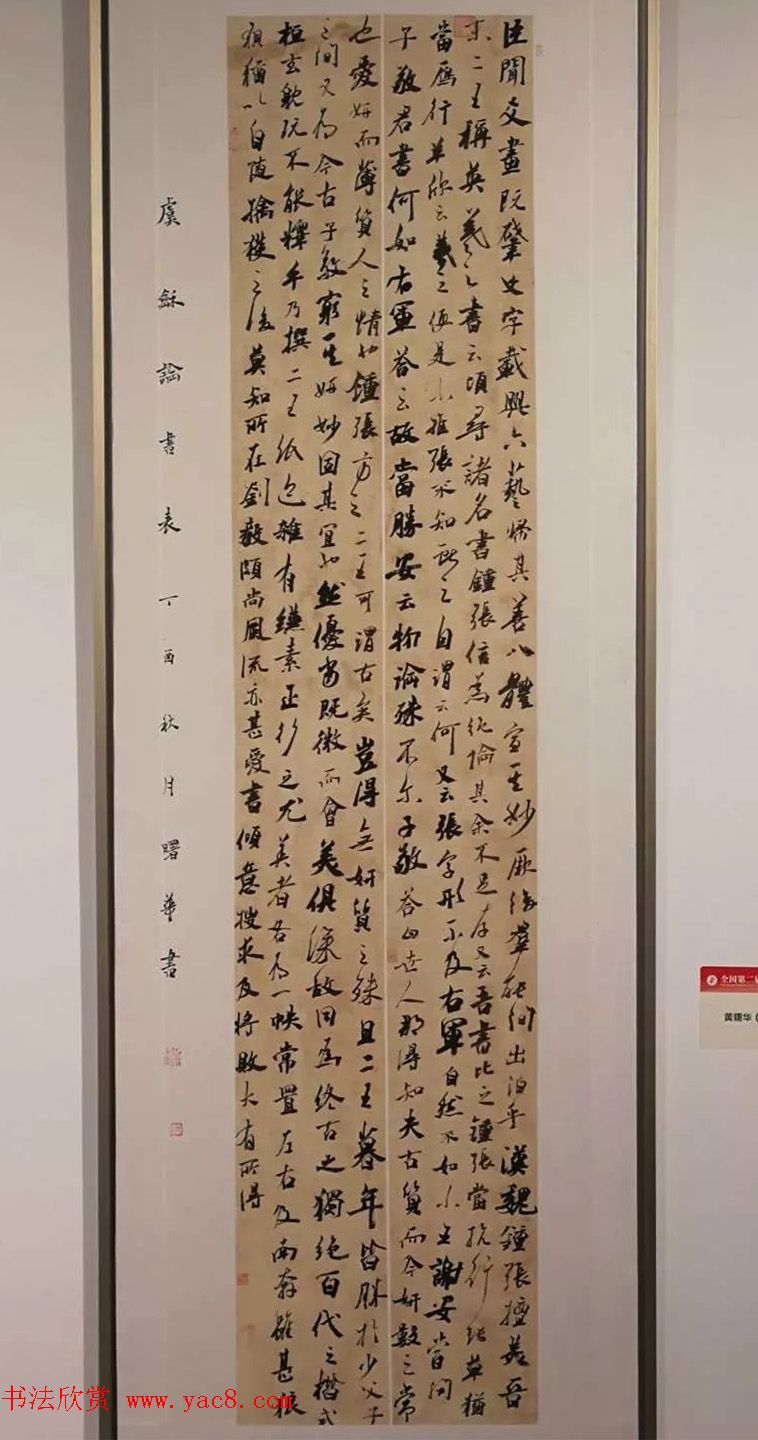 臣聞爻畫既肇文字載興六藝歸其善八體宣其妙厥後群能間出洎乎漢魏鍾張擅美晉
末二王稱英羲之書云頃尋諸名書鍾張信為絕倫其余不足存又云吾書比之鍾張當抗行張草猶
當雁行羊欣云羲之便是小推張不知獻之自謂云何又云張字形不及右軍自然不如小王謝安嘗問
子敬君書何如右軍答云故當勝安云物論殊不尔子敬答曰世人那得知夫古質而今妍數之常
也愛妍而薄質人之情也鍾張方之二王可謂古矣豈得無妍質之殊且二王暮年皆勝於少父子
之間又為今古子敬窮其妍妙固其宜也然優劣既微而會美俱深故同為終古之獨絕百代之楷式
桓玄耽玩不能釋手乃撰二王紙迹雜有縑素正行之尤美者各為一帙常置左右及南奔雖甚狼
狽猶以自隨擒獲之後莫知所在劉毅頗尚風流亦甚愛書傾意搜求及將敗大有所得
虞龢論書表丁酉秋月曙華書
全国第二届
黄曙华（
书法欣赏 www.yac8.com